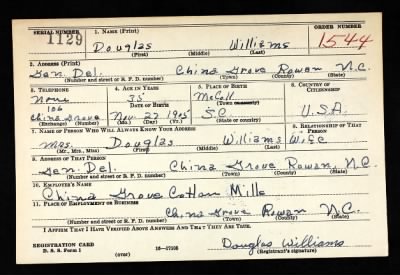 SERIAL NUMBER 1. NAME (Print) ORDER NUMBER
1129 Douglas Williams 1544
(First) (Middle) (Last)
2. ADDRESS (Print)
Gen. Del. China Grove Rowan N.C.
(Number and street or R. F. D. number) (Town) (County) (State)
3. TELEPHONE 4. AGE IN YEARS 5. PLACE OF BIRTH 6. COUNTRY OF CITIZENSHIP
None 35 McColl
DATE OF BIRTH (Town or county)
106
China Grove Nov. 27 1905 S.C U.S.A.
(Exchange) (Number) (Mo.) (Day) (Yr.) (State or country)
7. NAME OF PERSON WHO WILL ALWAYS KNOW YOUR ADDRESS 8. RELATIONSHIP OF THAT PERSON
Mrs Douglas Williams Wife
(Mr., Mrs., Miss) (First) (Middle) (Last)
9. ADDRESS OF THAT PERSON
Gen. Del. China Grove Rowan, N.C
(Number and street or R. F. D. number) (Town) (County) (State)
10. EMPLOYER'S NAME
China Grove Cotton Mills
11. PLACE OF EMPLOYMENT OR BUSINESS
China Grove Rowan N.C.
(Number and street or R. F. D. number) (Town) (County) (State)
I AFFIRM THAT I HAVE VERIFIED ABOVE ANSWERS AND THAT THEY ARE TRUE.
REGISTRATION CARD Douglas Williams
D. S. S. Form 1 (over) 16—17105 (Registrant's signature)